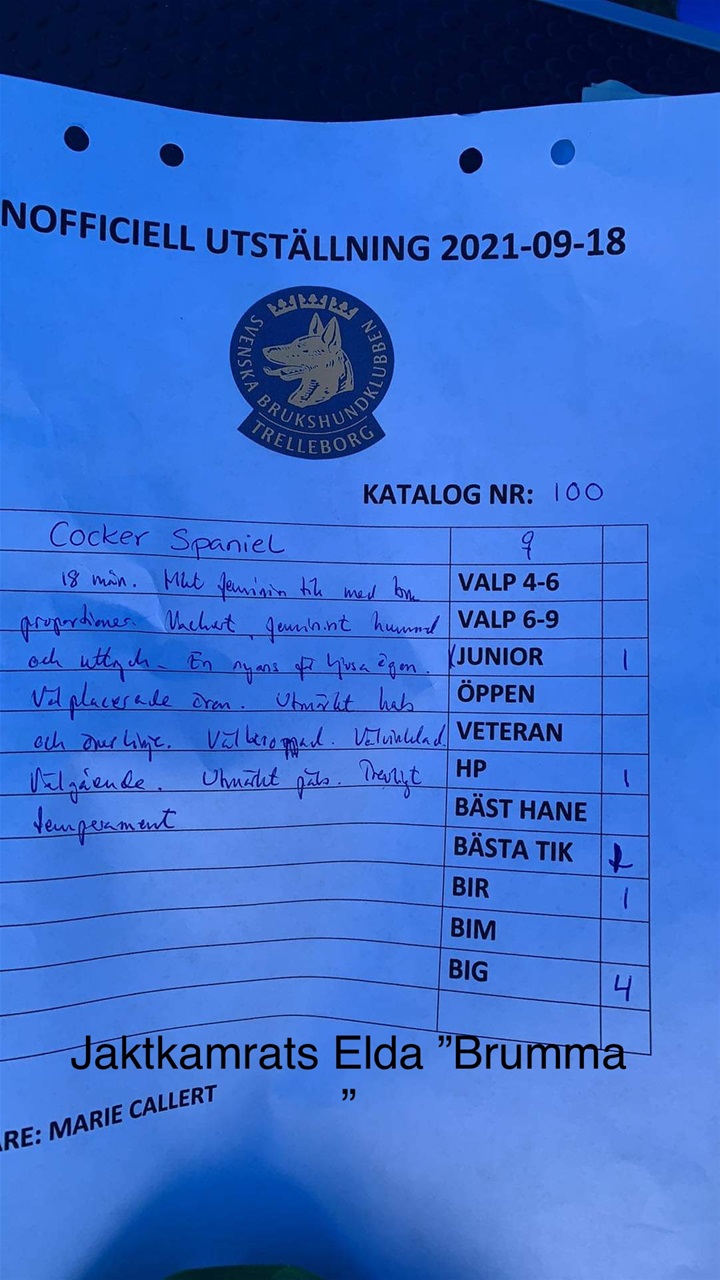 NOFFICIELL UTSTÄLLNING 2021-09-18
SVENSKA BRUKSHUNDKLUBBEN
TRELLEBORG
KATALOG NR: 100
Cocker Spaniel
18 mån. Mkt feminin tik med bra VALP 4-6
proportioner. Vackert, feminint huvud VALP 6-9
och uttryck. En nyans för ljusa ögon. JUNIOR 1
Välplacerade öron. Utmärkt hals ÖPPEN
och överlinje. Välkroppad. Välvinklad VETERAN
Välgående. Utmärkt päls. Trevligt HP 1
temperament BÄST HANE
BÄSTA TIK
BIR 1
BIM
BIG 4
Jaktkamrats Elda ”Brumma
”
ARE: MARIE CALLERT